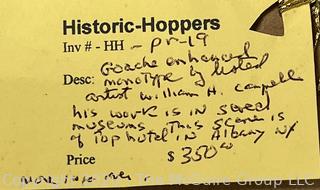 Historic-Hoppers
Inv # - HH - pr-19
Goache enhanced
Desc: monotype by noted
artist William H. Campell
his work is in several
museums. This scene is
of Top hotel in Albany NY
Price $350.00